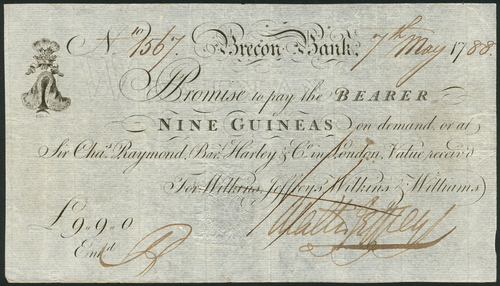 No. 1567. Brecon Bank. 7th May 1788.
I Promise to pay the BEARER
NINE GUINEAS on demand, or at
Sir Chas. Raymond, Bart. Harley & Co. in London, Value receiv'd
For Wilkins, Jeffreys, Wilkins & Williams
£9„9„0 Walter Jeffreys
Entd.